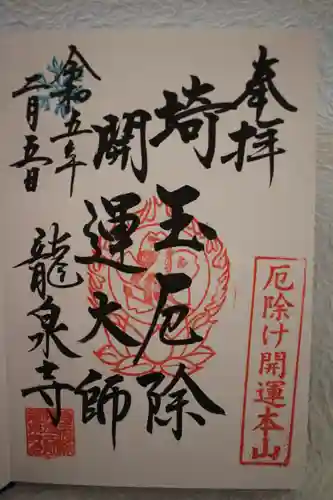 奉拝
埼玉厄除
開運大師
令和五年
二月五日
龍泉寺
厄除け開運本山